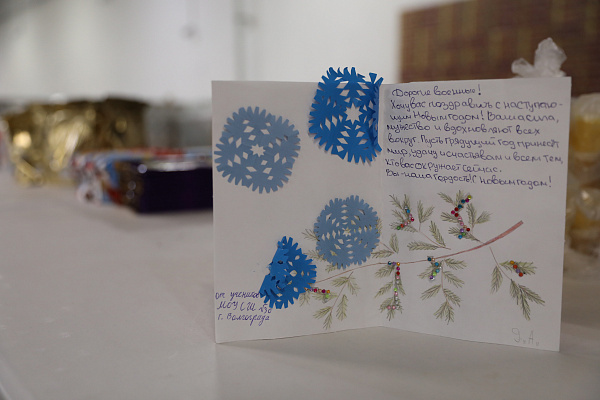 Дорогие военные!
Хочу вас поздравить с наступаю-
щим Новым годом! Ваша сила,
мужество и вдохновляют всех
вокруг. Пусть грядущий год принесёт
мир, удачу и счастья вам и всем тем,
кто вас окружает сейчас.
Вы - наша гордость! С новым годом!
от ученик
МОУ СШ
г. Волгограда
Э.А.